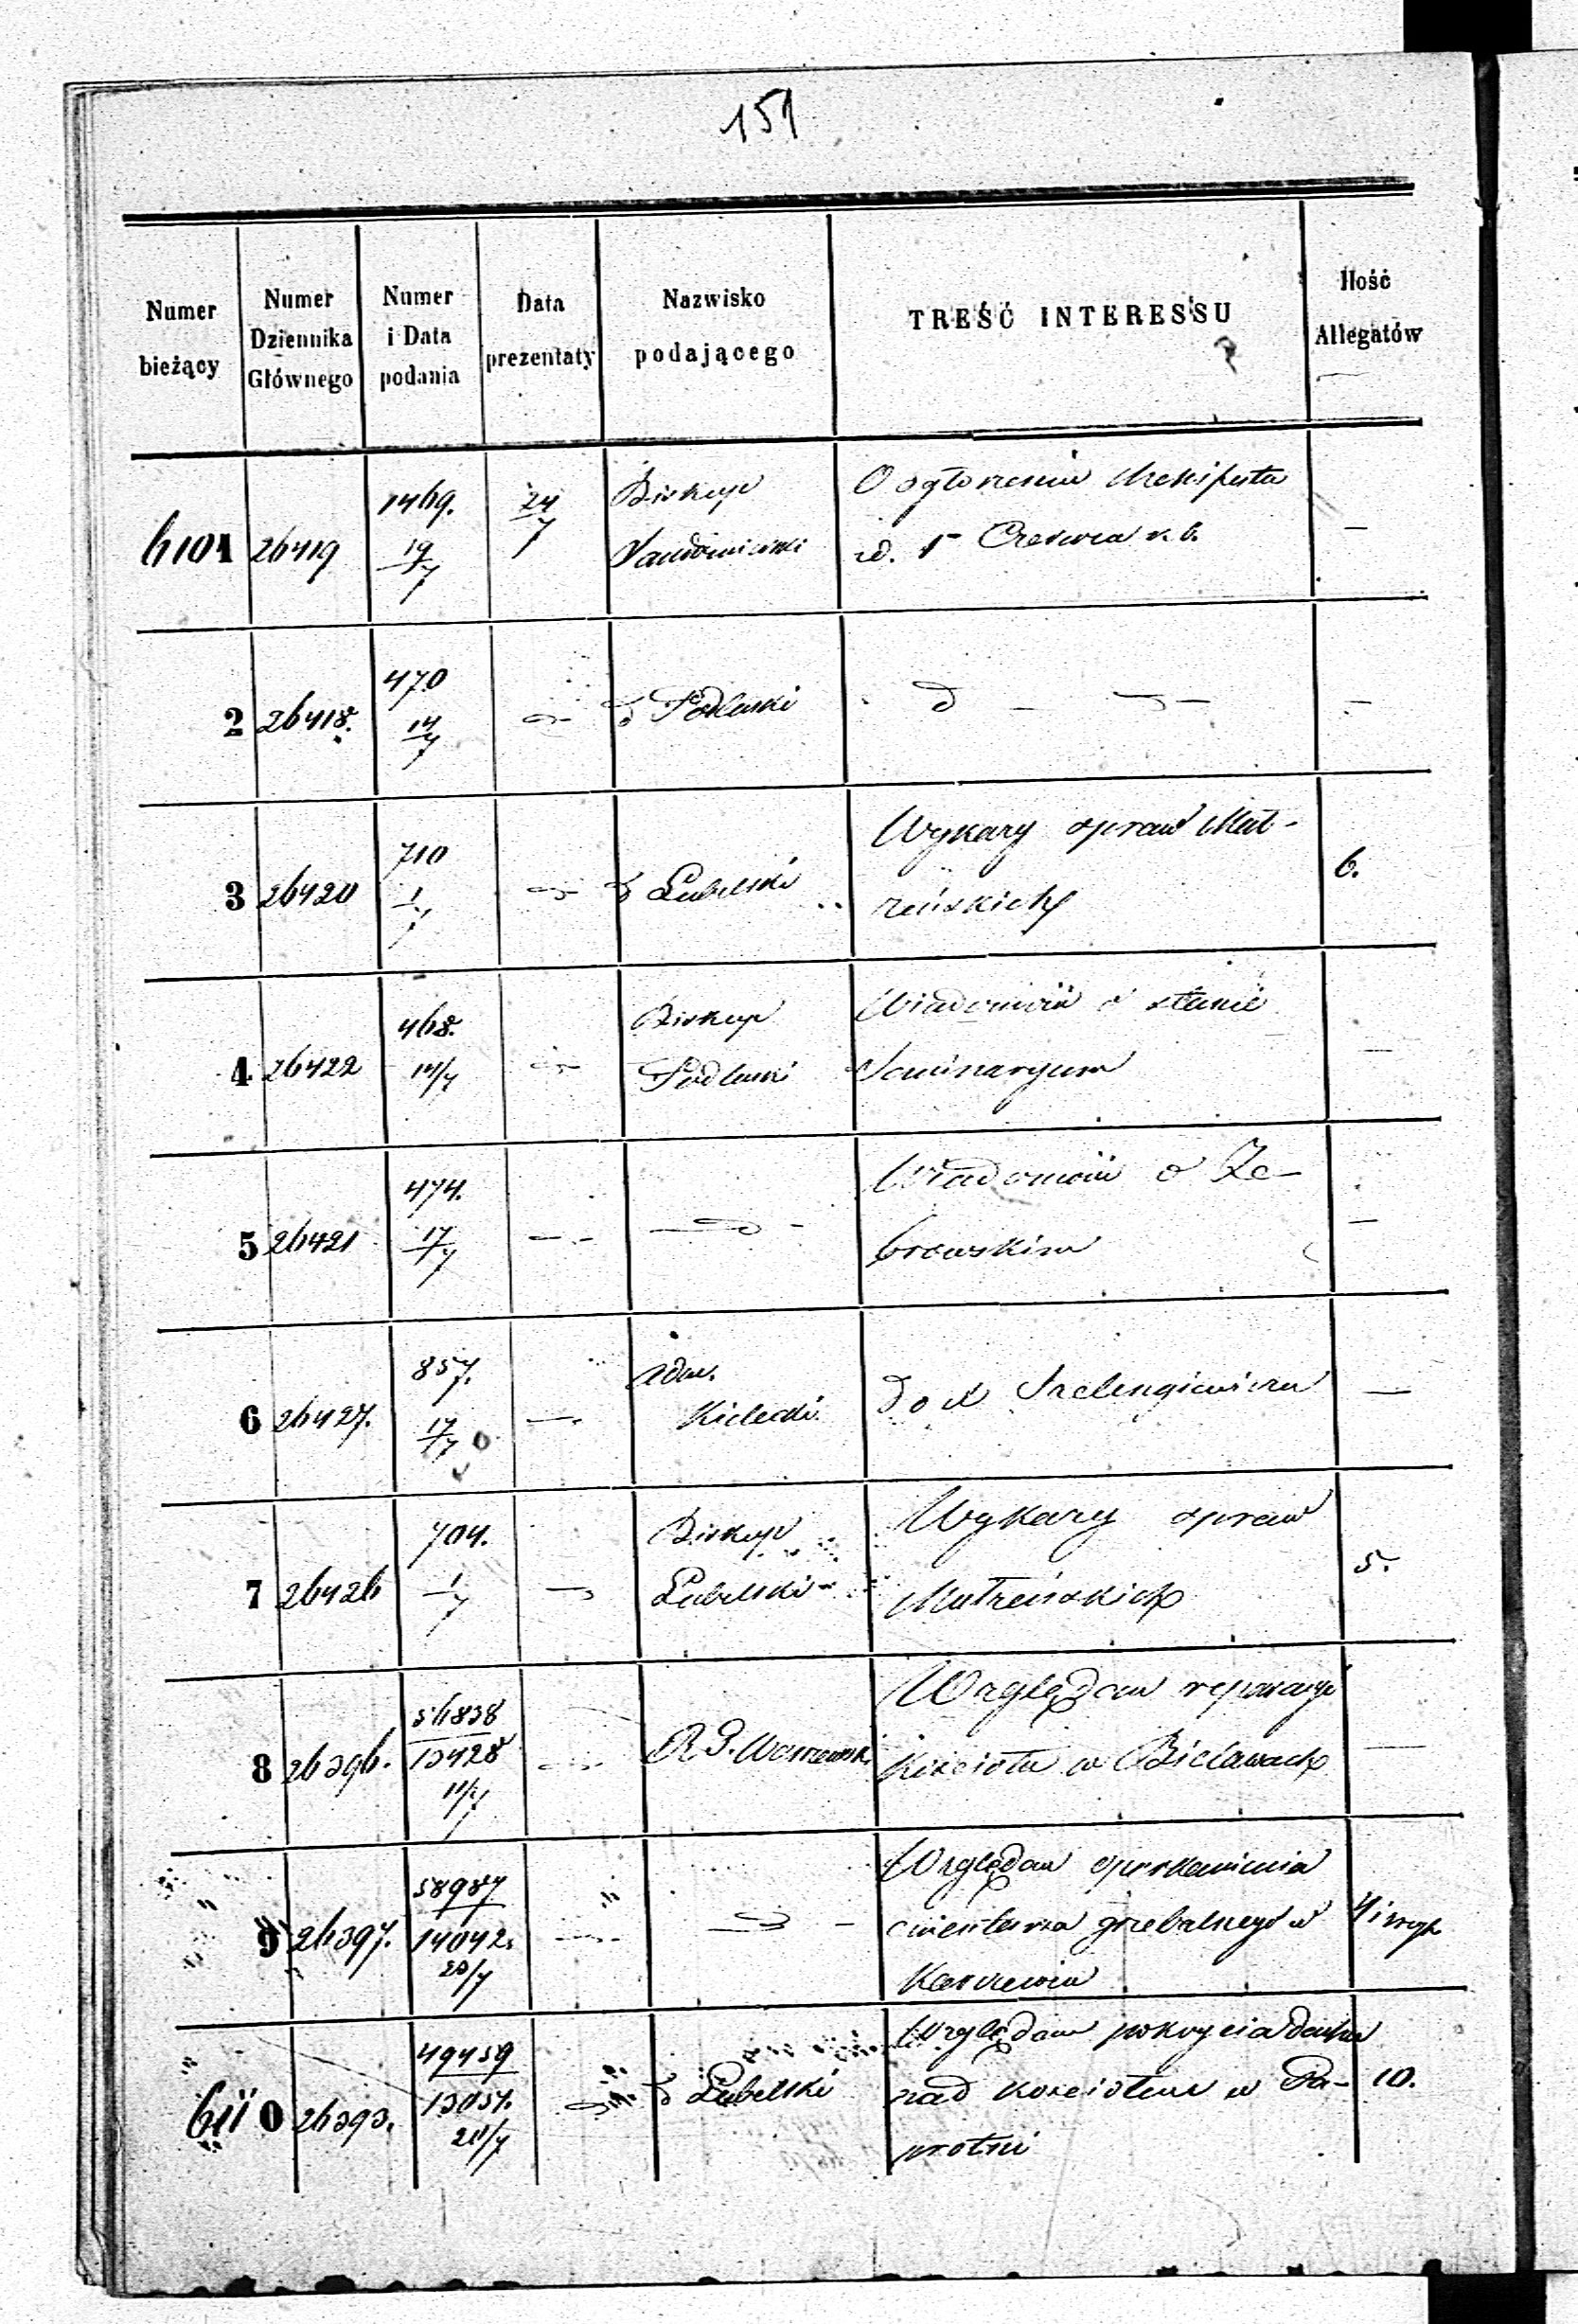 151
Numer bieżący
Numer Dziennika Głównego
Numer i Data podania
Data prezentaty
Nazwisko podającego
TREŚĆ INTERESSU
Ilość Allegatów
6101 26419 1469. 19/7 24/7 Biskup Sandomierski O ogłoszeniu Manifestu
z d. 1 Czerwca r. b. —
2 26418. 470 14/7 d Podlaski d — —
3 26420 710 1/7 d Lubelski Wykazy spraw Mał-
żeńskich 6.
4 26422 468. 14/7 Biskup Podlaski Wiadomość o stanie
Seminaryum —
5 26421 474. 17/7 — d — Wiadomość o Że-
browskim —
6 26427. 857. 17/7 Adm. Kielecki Do X —
7 26426 704. 1/7 Biskup Lubelski Wykazy spraw
Małżeńskich 5.
8 26396. 56838 13428 11/7 R. G. Warszawski Względem reparacyi
Kościoła w Bielawach —
9 26397. 58987 14042. 20/7 — d — Względem
cmentarza grzebalnego w 4
6110 26393. 49459 13057. 20/7 d Lubelski Względem pokrycia dachu
nad kościołem w Pa- 10.
protni